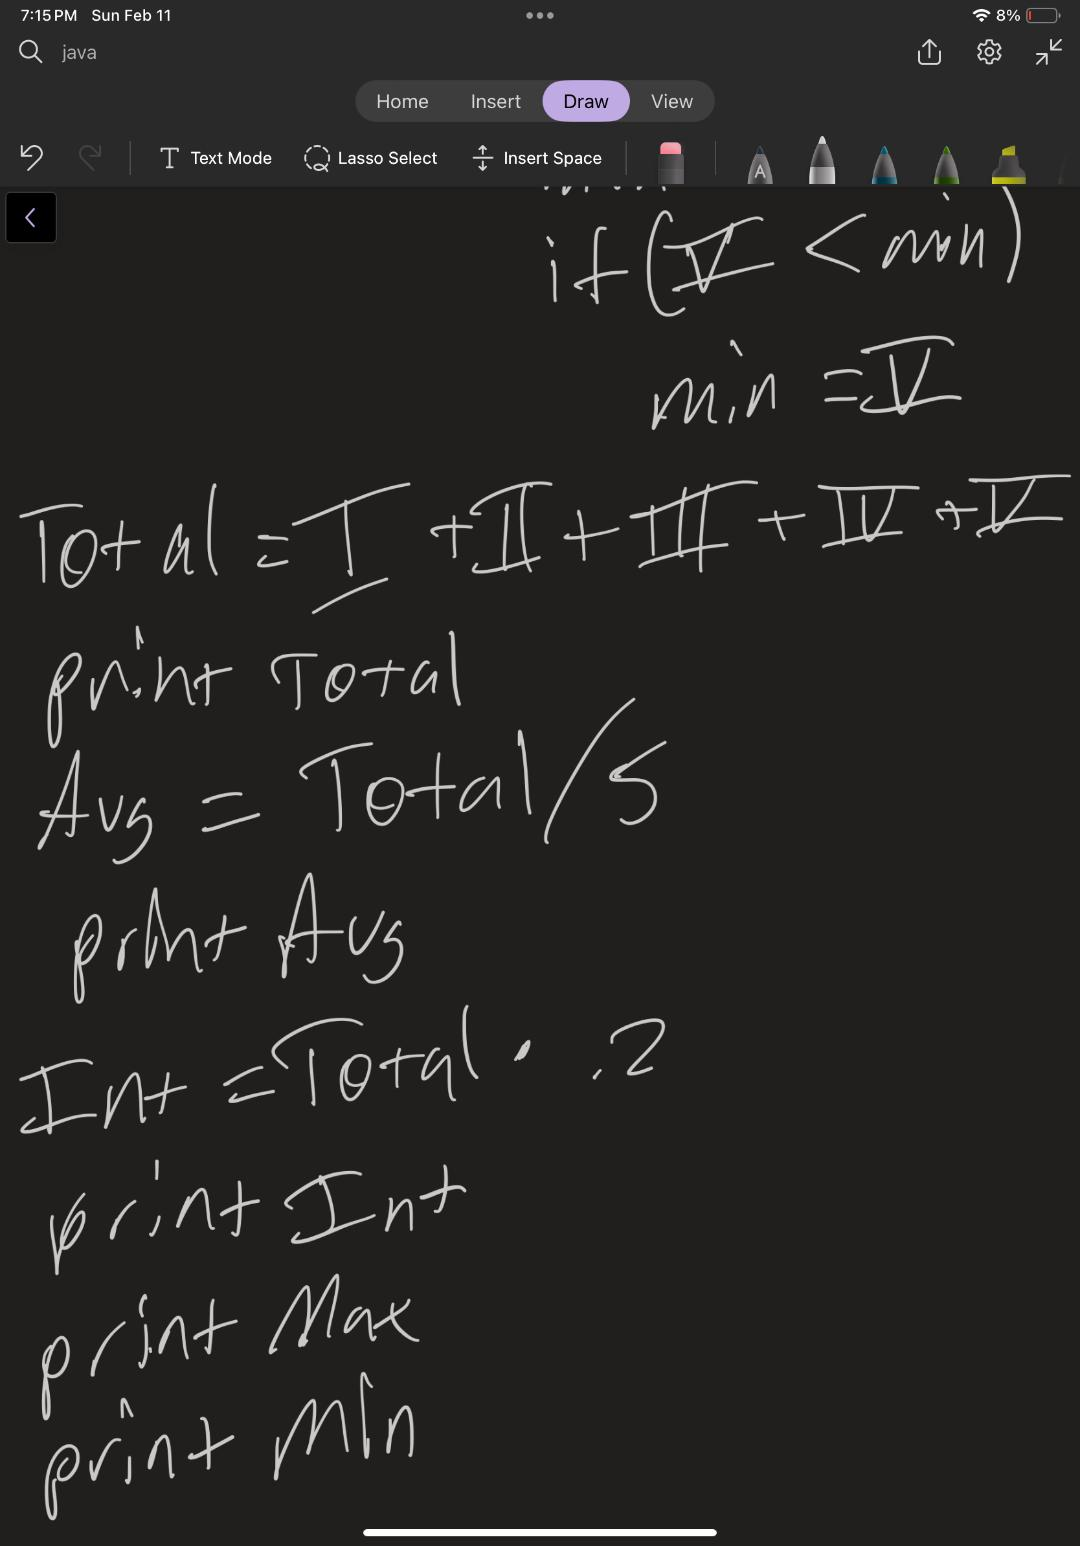 7:15 PM Sun Feb 11
8%
java
Home Insert Draw View
Text Mode Lasso Select Insert Space
A
if (V < min)
min = V
Total = I + II + III + IV + V
print Total
Avg = Total/5
print Avg
Int = Total · .2
print Int
print Max
print Min